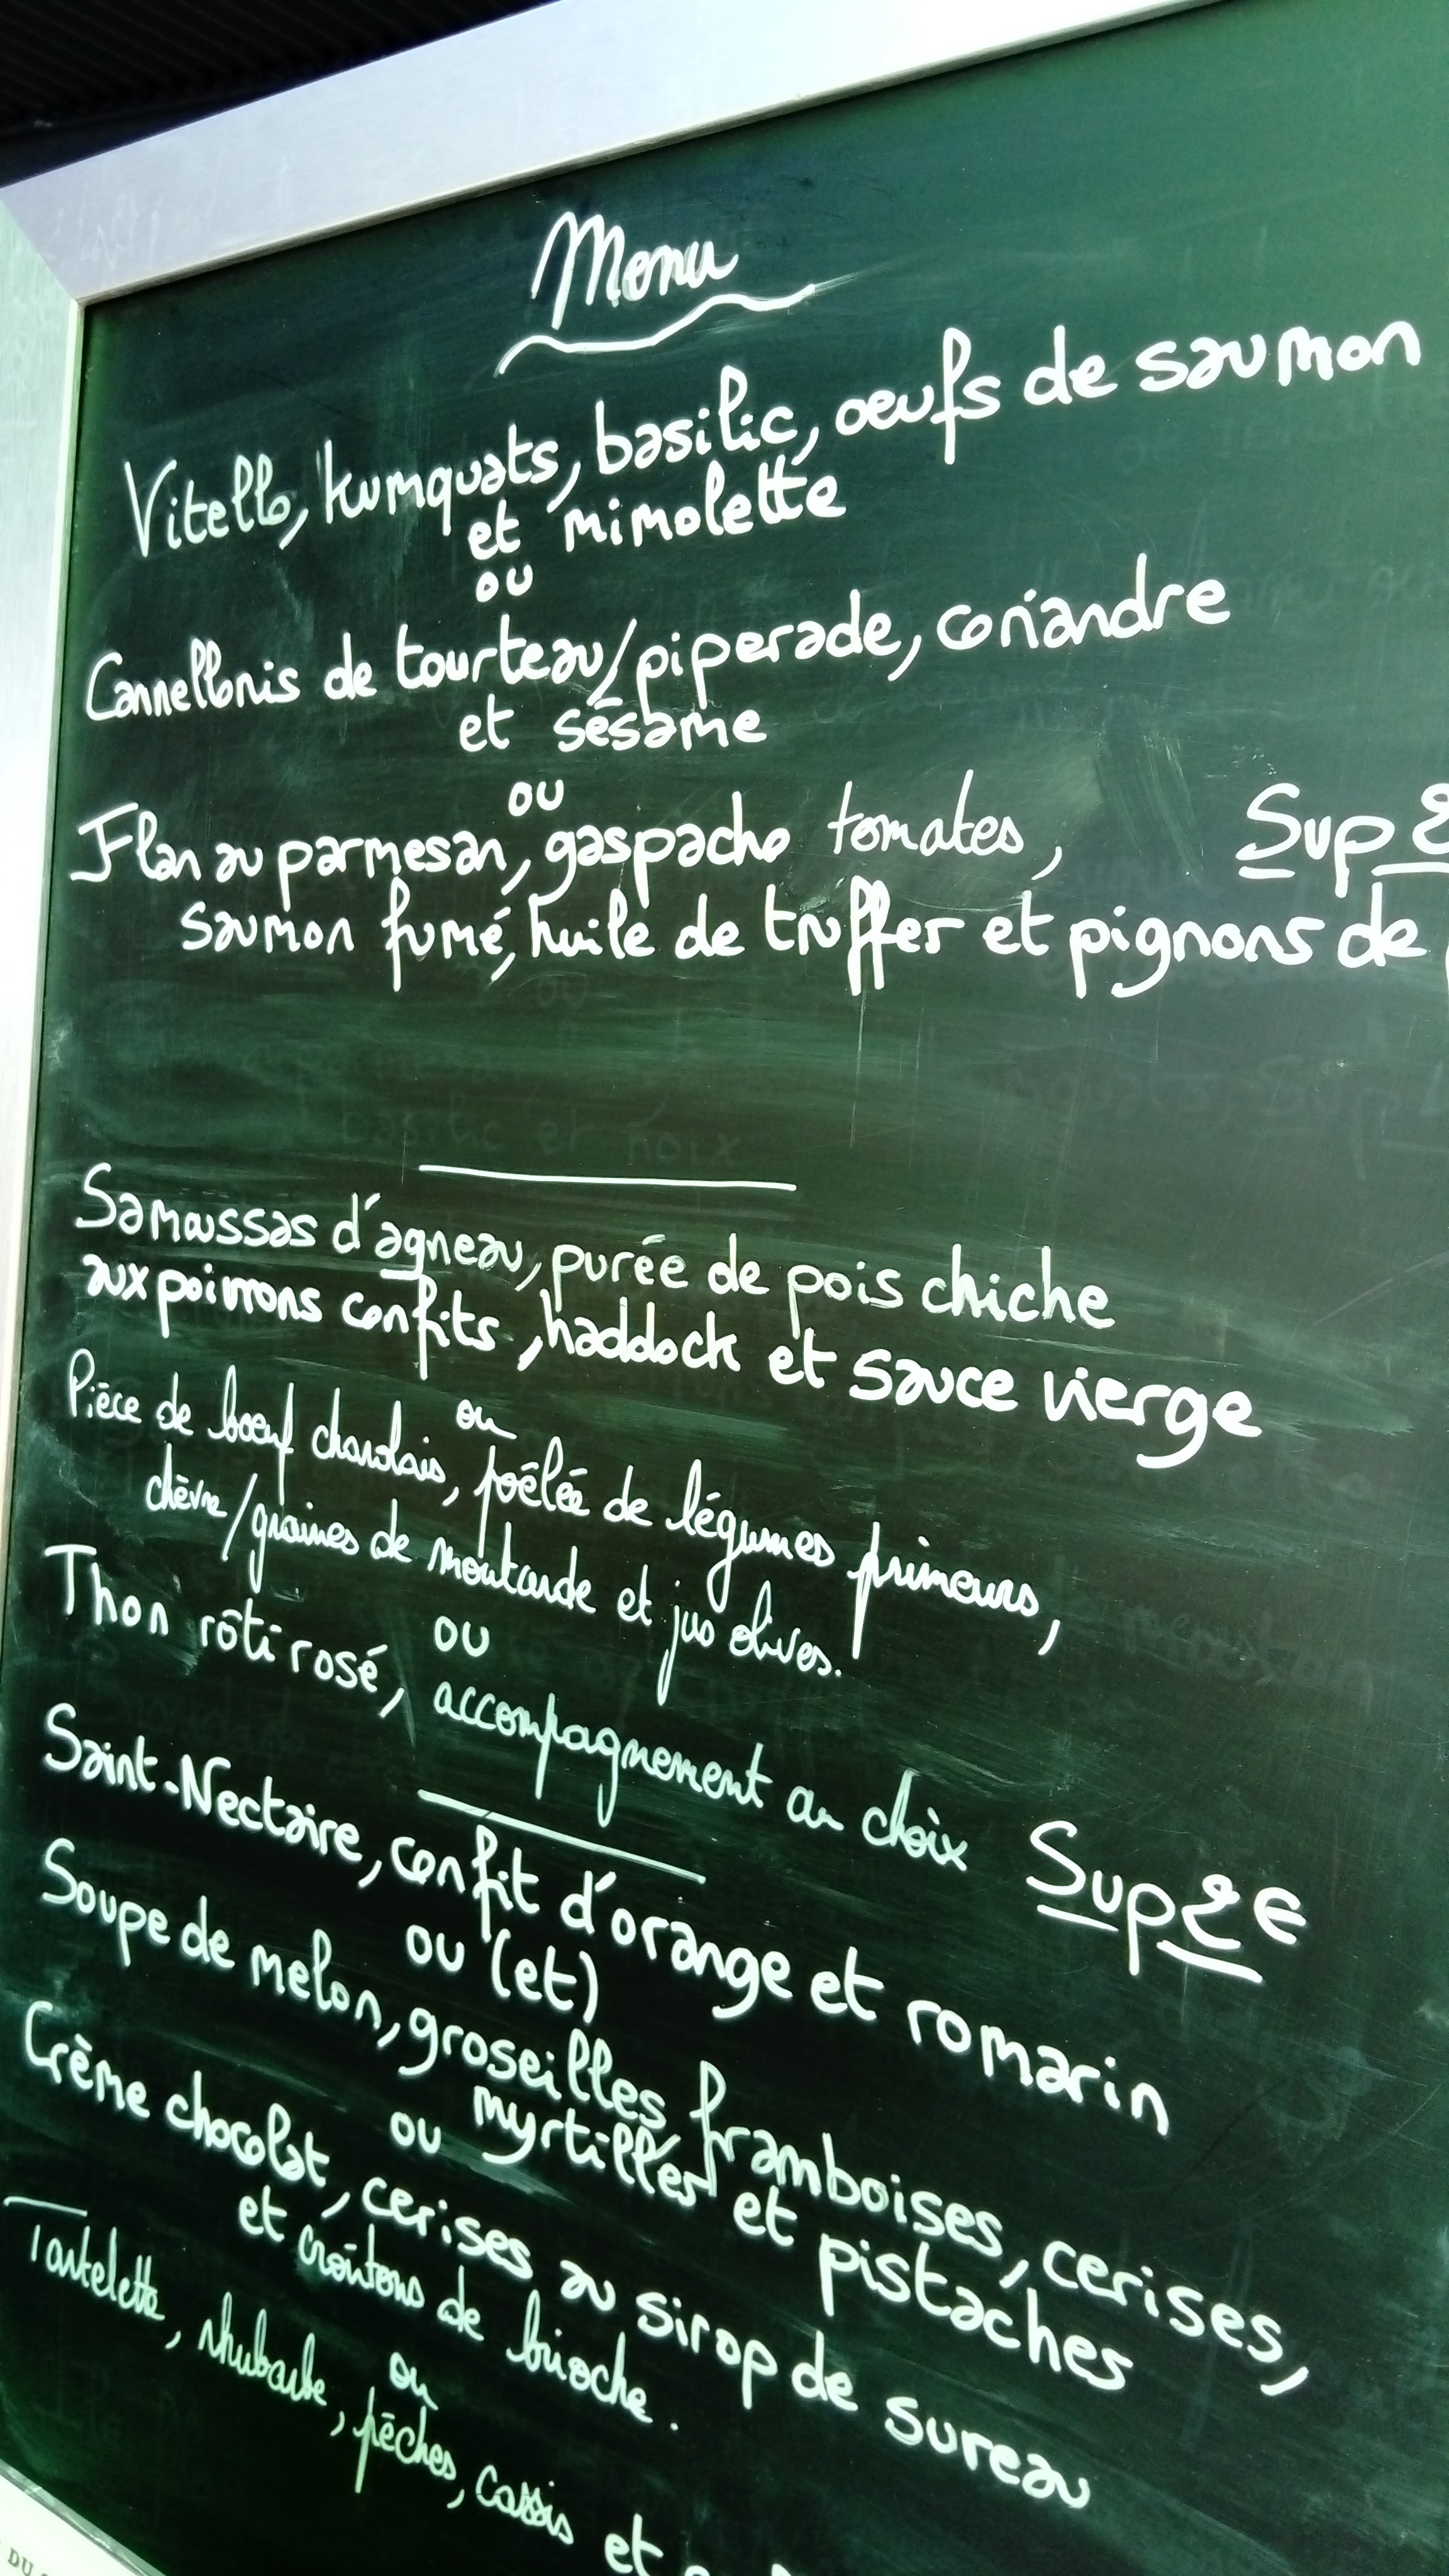 Menu
Vitello, kumquats, basilic, oeufs de saumon
et mimolette
ou
Cannellonis de tourteau/piperade, coriandre
et sésame
ou
Flan au parmesan, gaspacho tomates, Sup 2
saumon fumé, huile de truffer et pignons de
Samoussas d'agneau, purée de pois chiche
aux poivrons confits, haddock et sauce vierge
ou
Pièce de boeuf charolais, poêlée de légumes primeurs,
chèvre/graines de moutarde et jus olives.
ou
Thon rôti rosé, accompagnement au choix Sup 2€
Saint-Nectaire, confit d'orange et romarin
ou (et)
Soupe de melon, groseilles, framboises, cerises,
myrtilles et pistaches
ou
Crème chocolat, cerises au sirop de sureau
et croûtons de brioche.
ou
Tartelette, rhubarbe, pêches, cassis et
DU